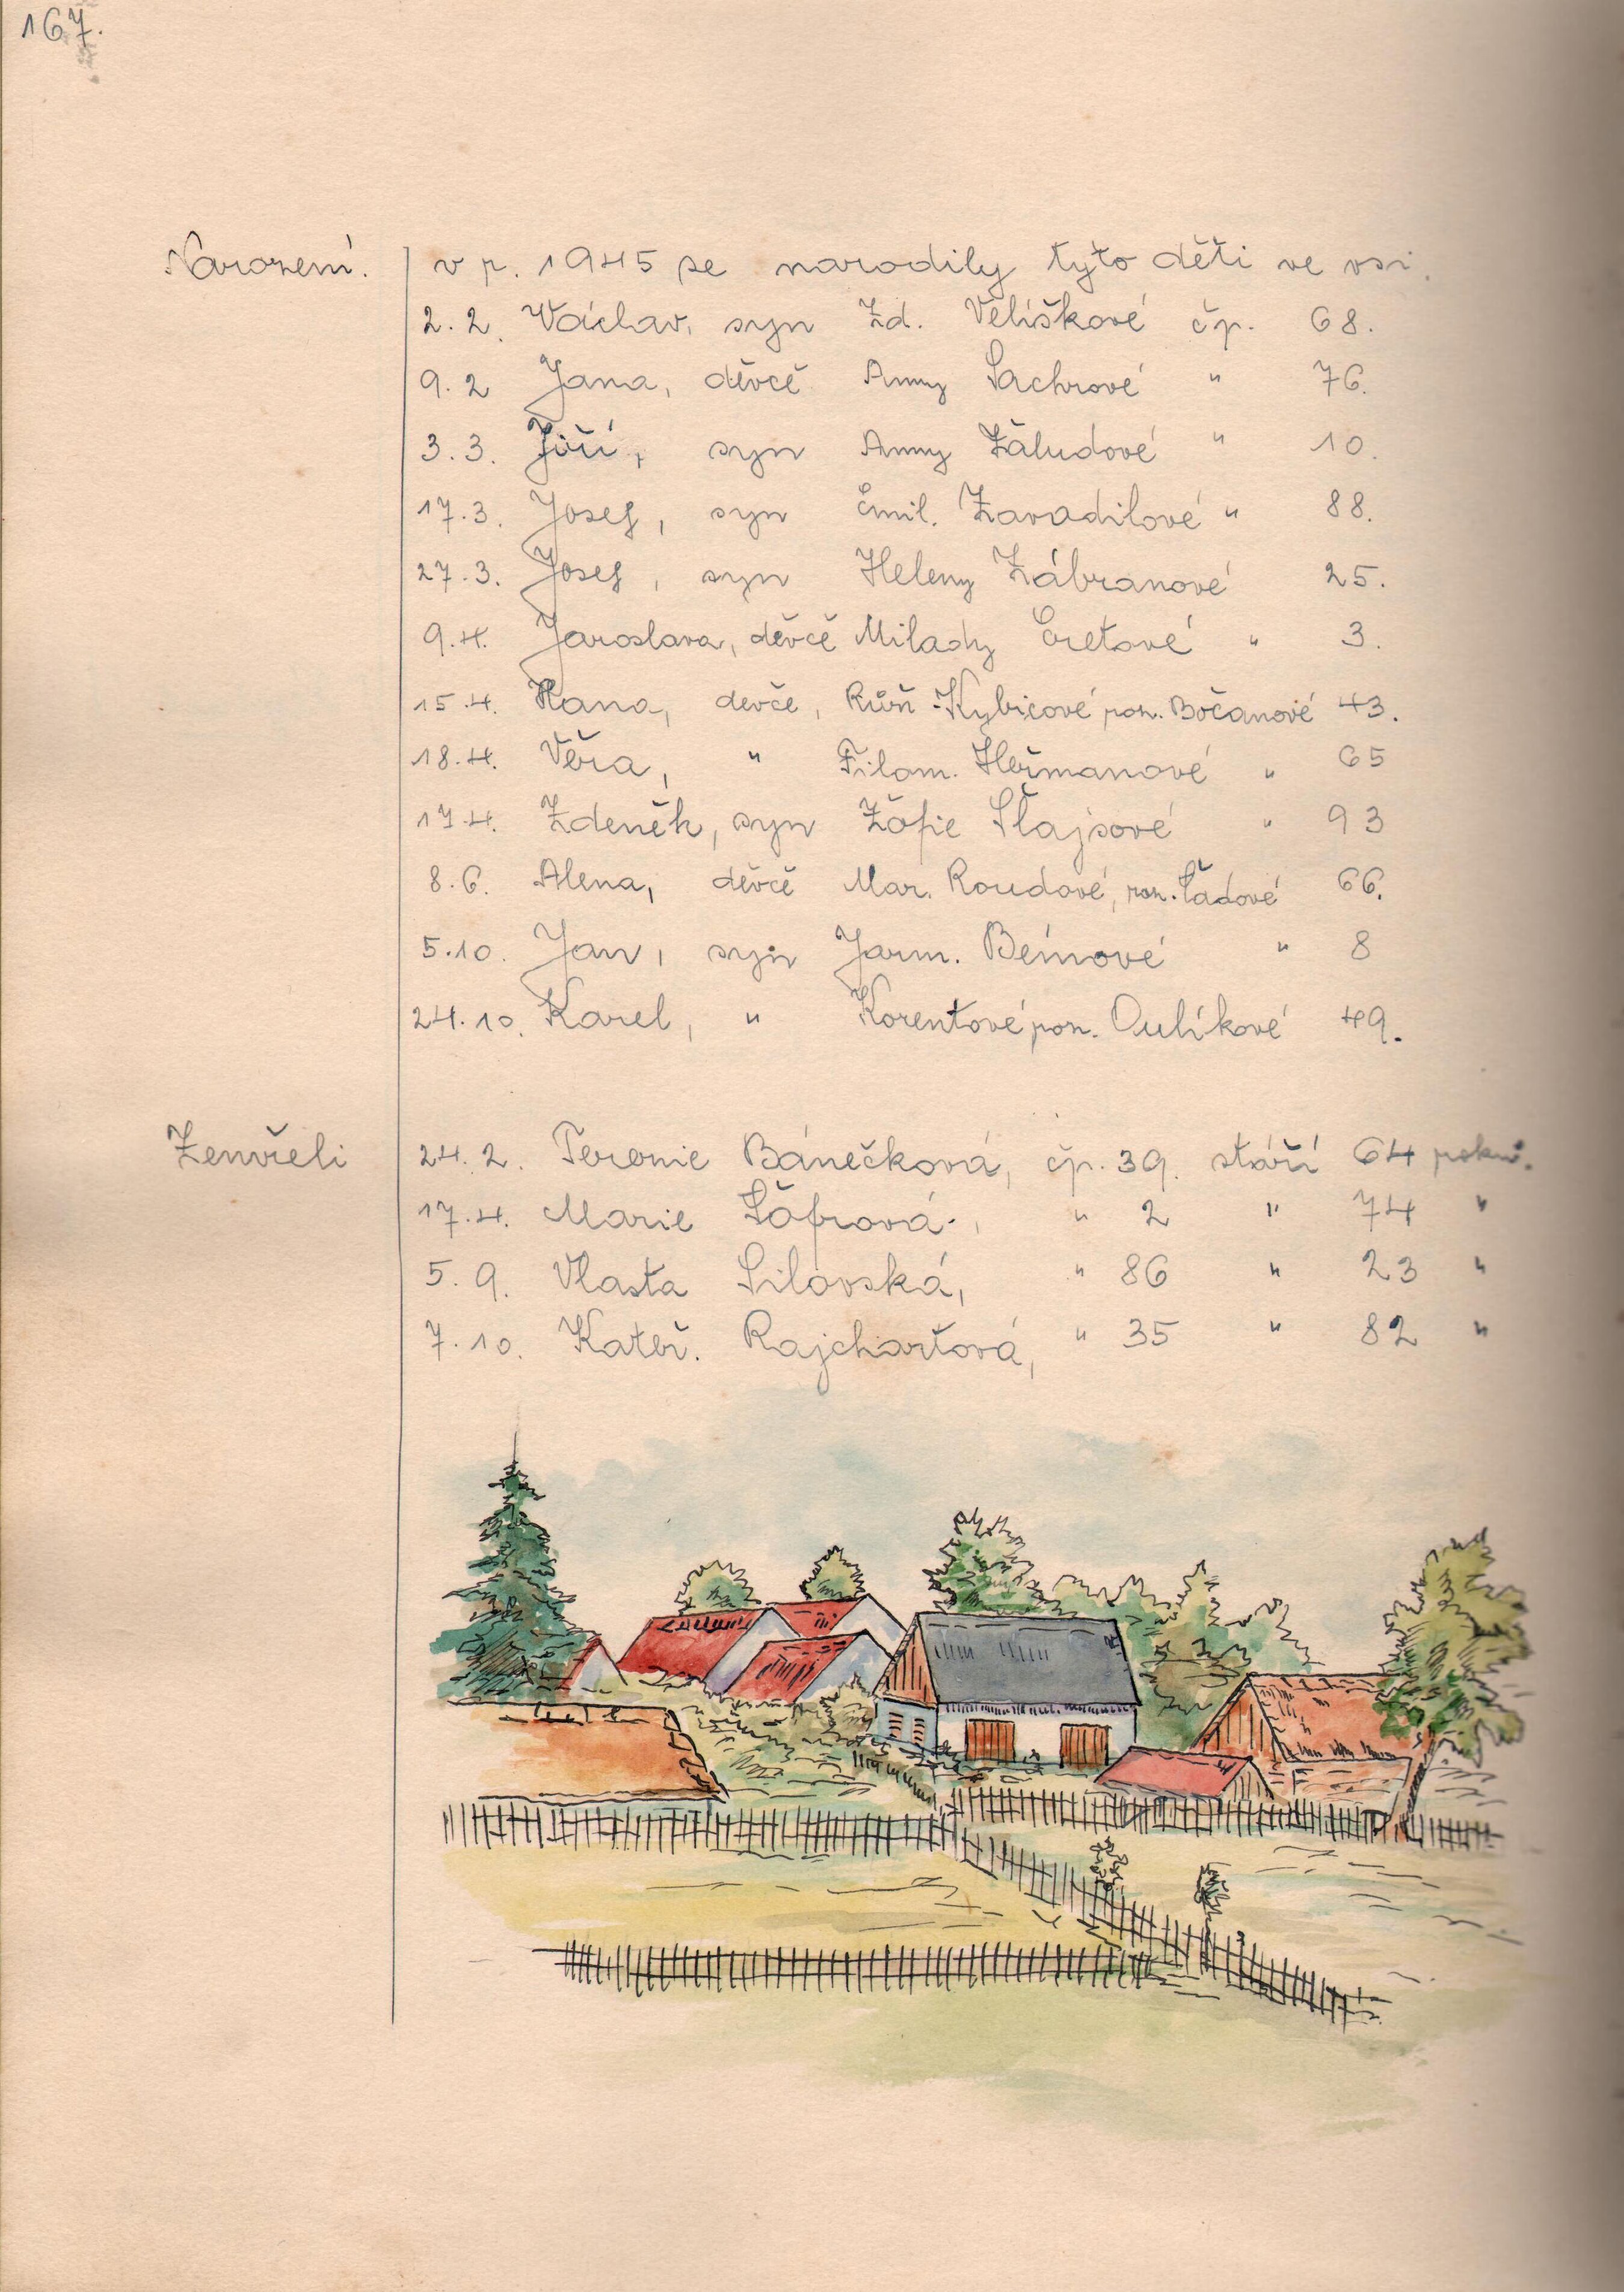 167.
Narození. v r. 1945 se narodily tyto děti ve vsi.
2.2. Václav, syn Zd. Velíškové čp. 68.
9.2 Jana, děvče Anny Sachrové " 76.
3.3. Jiří, syn Anny Žáludové " 10.
17.3. Josef, syn Emil. Zavadilové " 88.
27.3. Josef, syn Heleny Zábranové 25.
9.4. Jaroslava, děvče Milady Cretové " 3.
15.4. Hana, devče, Růž. Kybicové poz. Bočanové 43.
18.4. Věra, " Filom. Heřmanové " 65
17.4. Zdeněk, syn Žofie Šlajsové " 93
8.6. Alena, děvče Mar. Roudové, roz. Šádové 66.
5.10. Jan, syn Jarm. Beinové " 8
24.10. Karel, " Korentové poz. Oulíkové 49.
Zemřeli 24.2. Terezie Bánečková, čp. 39. stáří 64 roků.
17.4. Marie Šafrová, " 2 " 74 "
5.9. Vlasta Silovská, " 86 " 23 "
7.10. Kateř. Rajchartová, " 35 " 82 "